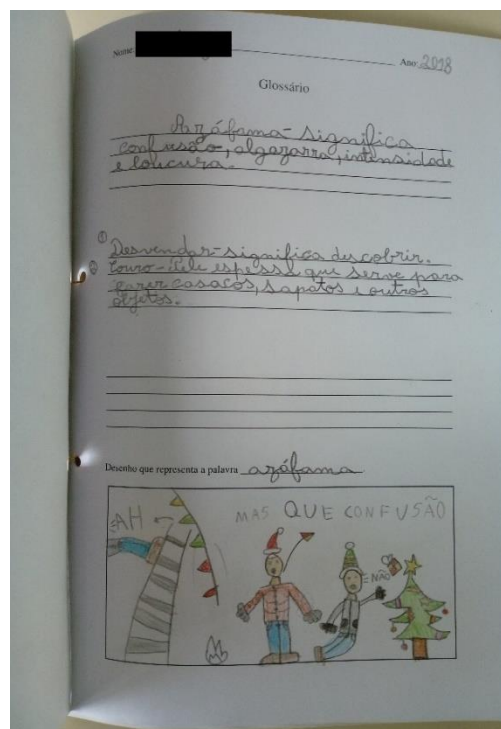 Nome: Ano: 2018
Glossário
Azáfama - significa
confusão, algazarra, intensidade
e loucura.
① Desvendar - significa descobrir.
② Couro - Pele espessa que serve para
fazer casacos, sapatos e outros
objetos.
Desenho que representa a palavra azáfama
AH MAS QUE CONFUSÃO
NÃO